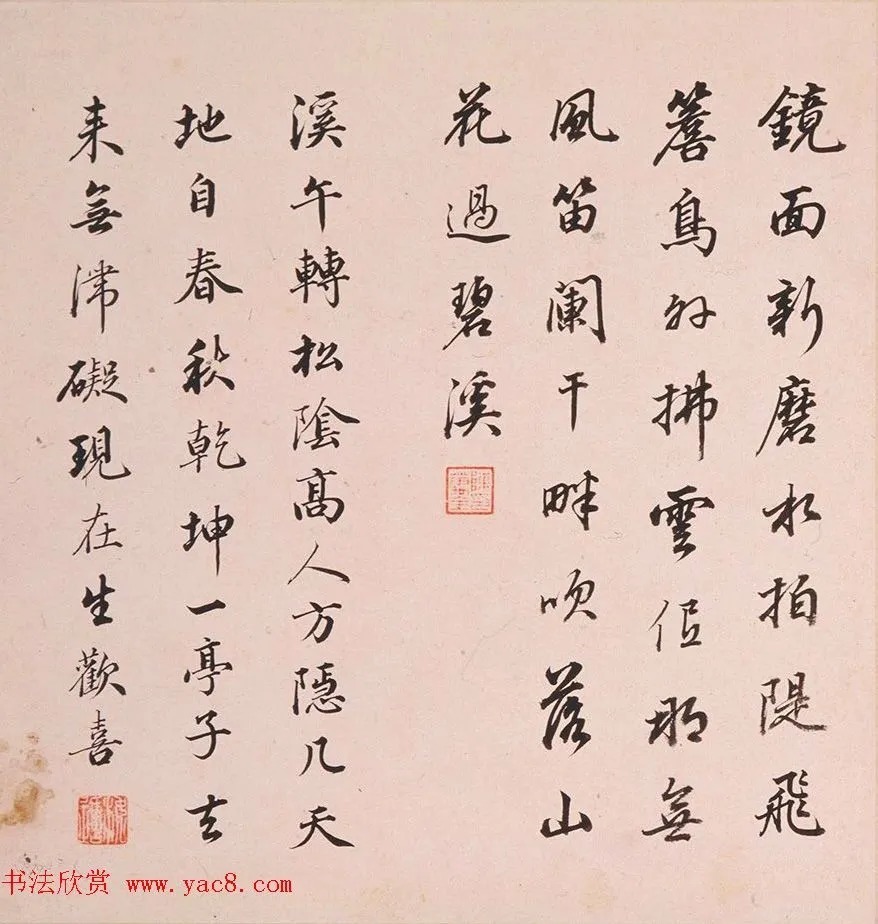 鏡面新磨水拍隄飛
簷鳥外拂雲低那無
風笛闌干畔吹落山
花過碧溪
溪午轉松陰高人方隱几天
地自春秋乾坤一亭子去
来無滯礙現在生歡喜
书法欣赏 www.yac8.com